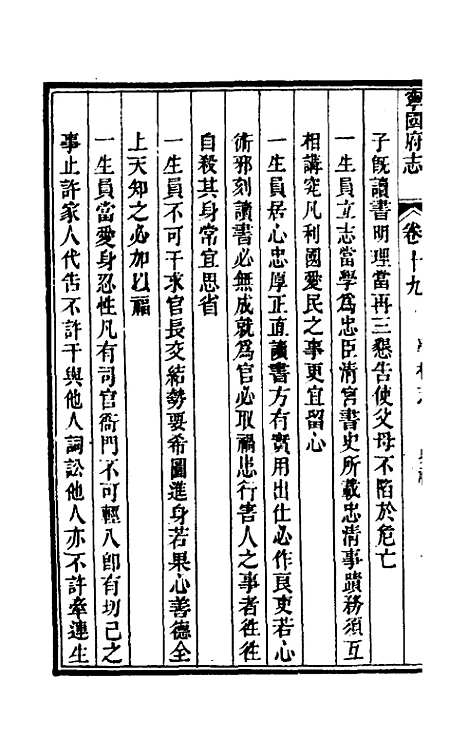 寧國府志 卷十九
子既讀書明理當再三懇告使父母不陷於危亡
一生員立志當學爲忠臣清官書史所載忠清事蹟務須互
相講究凡利國愛民之事更宜留心
一生員居心忠厚正直讀書方有實用出仕必作良吏若心
術邪刻讀書必無成就爲官必取禍患行害人之事者往往
自殺其身常宜思省
一生員不可干求官長交結勢要希圖進身若果心善德全
上天知之必加以福
一生員當愛身忍性凡有司官衙門不可輕入即有切己之
事止許家人代告不許干與他人詞訟他人亦不許牽連生